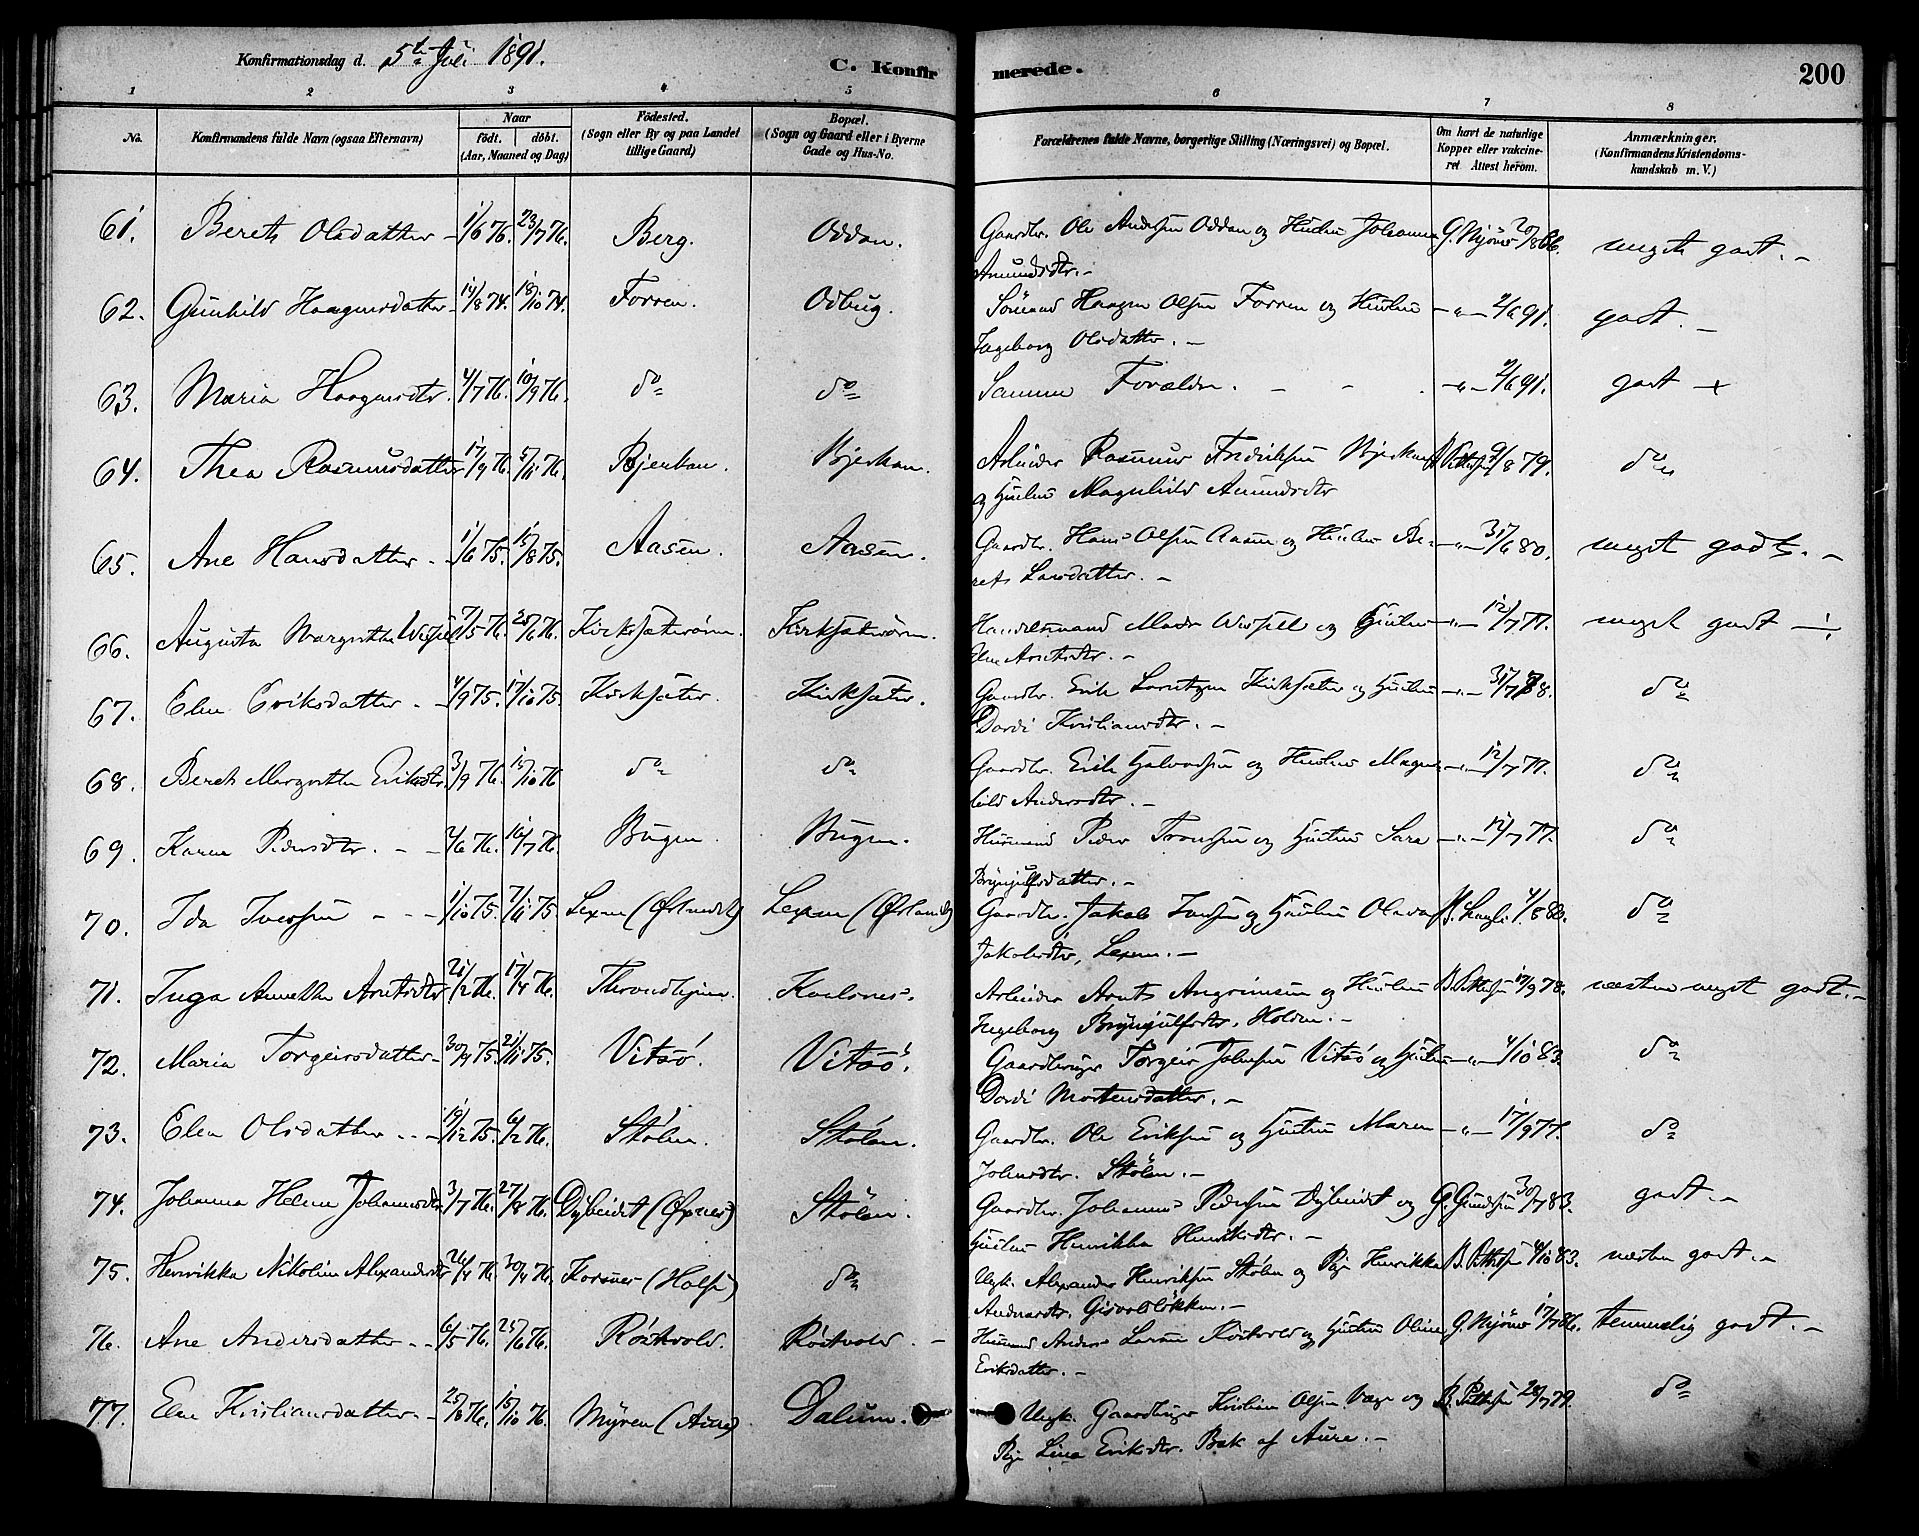 Konfirmationsdag d. 5te Juli 1891.
C. Konfir merede. 200
1 2 3 4 5 6 7 8
No. Konfirmandens fulde Navn (ogsaa Efternavn) Naar födt. döbt. (Aar, Maaned og Dag) Födested. (Sogn eller By og paa Landet tillige Gaard) Bopæl. (Sogn og Gaard eller i Byerne Gade og Hus-No. Forældrenes fulde Navne, borgerlige Stilling (Næringsvei) og Bopæl. Om havt de naturlige Kopper eller vakcineret Attest herom. Anmærkninger. (Konfirmandens Kristendomskundskab m. V.)
61. Beret Olsdatter 1/6 76. 23/7 76. Berg. Oddan. Gaardbr. Ole Andersen Oddan og Hustru Johanna G. Mjönes 20/8 86. meget godt. -
Amundsdtr. -
62. Gunhild Haagensdatter 14/8 74. 18/10 74. Forren. Odbug. Haagen Olsen Forren og Hustru - " - 2/6 91. godt. -
Ingeborg Olsdatter. -
63. Maria Haagensdtr. 4/7 76. 10/9 76. do do Samme Forældre. - - 2/6 91. godt -
64. Thea Rasmusdatter 17/9 76. 5/11 76. Bjerkan. Bjerkan. Arbeider Rasmus Fredriksen Bjerkan B. Pettersen 9/8 79. do
og Hustru Magnhild Amundsdtr
65. Ane Hansdatter - 1/6 75. 15/8 75. Aasen. Aasen. Gaardbr. Hans Olsen Aasen og Hustru Be- - " - 31/6 80. meget godt. -
ret Larsdatter. -
66. Augusta Margrethe Wessel 7/5 76. 25/6 76. Kirksæterören. Kirksæterören. Handelsmand Mads Wessel og Hustru - " - 12/7 77. meget godt -
Elen Arntsdtr. -
67. Elen Eriksdatter - 4/9 75. 17/10 75. Kirksæter. Kirksæter. Gaardbr. Erik Lorntzen Kirksæter og Hustru - " - 31/7 88. do
Dordi Kristiansdtr. -
68. Beret Margrethe Eriksdtr. 3/9 76. 15/10 76 do do Gaardbr. Erik Halvorsen og Hustru Magn- - " - 12/7 77. do
hild Andersdtr. -
69. Karen Pedersdtr. - - 2/6 76. 16/7 76. Bugen. Bugen. Husmand Peder Tronsen og Hustru Sara - " - 12/7 77. do
Brynjulfsdatter. -
70. Ida Iversen - - - 1/10 75. 7/11 75 Lexen (Örlandet) Lexen (Örlandet) Gaardbr. Jakob og Hustru Olava 4/8 80. do
Jakobsdtr, Lexen. -
71. Inga Annette Arntsdtr 21/2 76. 17/4 76. Throndhjem. Karlsnes. Arbeider Arnt Angrimsen og Hustru B. Pettersen 17/9 78. næsten meget godt. -
Ingeborg Brynjulfsdtr. Holden. -
72. Maria Torgeirsdatter 30/9 75. 21/11 75. Vitsö. Vitsö. Gaardbruger Torgeir Johnsen Vitsö og Hustru - " - 4/10 83. do
Dordi Mortensdatter. -
73. Elen Olsdatter - - 19/12 75. 6/2 76. Stölen. Stölen. Gaardbr. Ole Eriksen og Hustru Maren - " - 17/9 77. do
Johnsdtr. Stölen. -
74. Johanna Helene Johannesdtr 3/7 76. 27/8 76. Dybeidet (Öxnes) Stölen. Gaardbr. Johannes Pedersen Dybeidet og G. Gundersen 30/7 83. godt. -
Hustru Henrikka Henriksdtr. -
75. Henrikka Nikoline Alexandersdtr 21/4 76. 30/4 76. Korsnes (Halse) do Ugk. Alexander Henriksen Stölen og Pige Henrikka B. Pettersen 4/10 83. næsten godt. -
Andersdtr. Gisvoldlökken. -
76. Ane Andersdatter - - 6/5 76. 25/6 76. Röstvold. Röstvold. - Husmand Anders Larsen Röstvold og Hustru Oline G. Mjönes 17/7 86. temmelig godt. -
Eriksdatter. -
77. Elen Kristiansdatter. - 25/8 76. 15/10 76. Myren (Aure). Dalum. - Ungk. Gaardbruger Kristian Olsen Vage og B. Pettersen 28/7 79. do
Pige Lina Eriksdtr. Bak af Aure. -